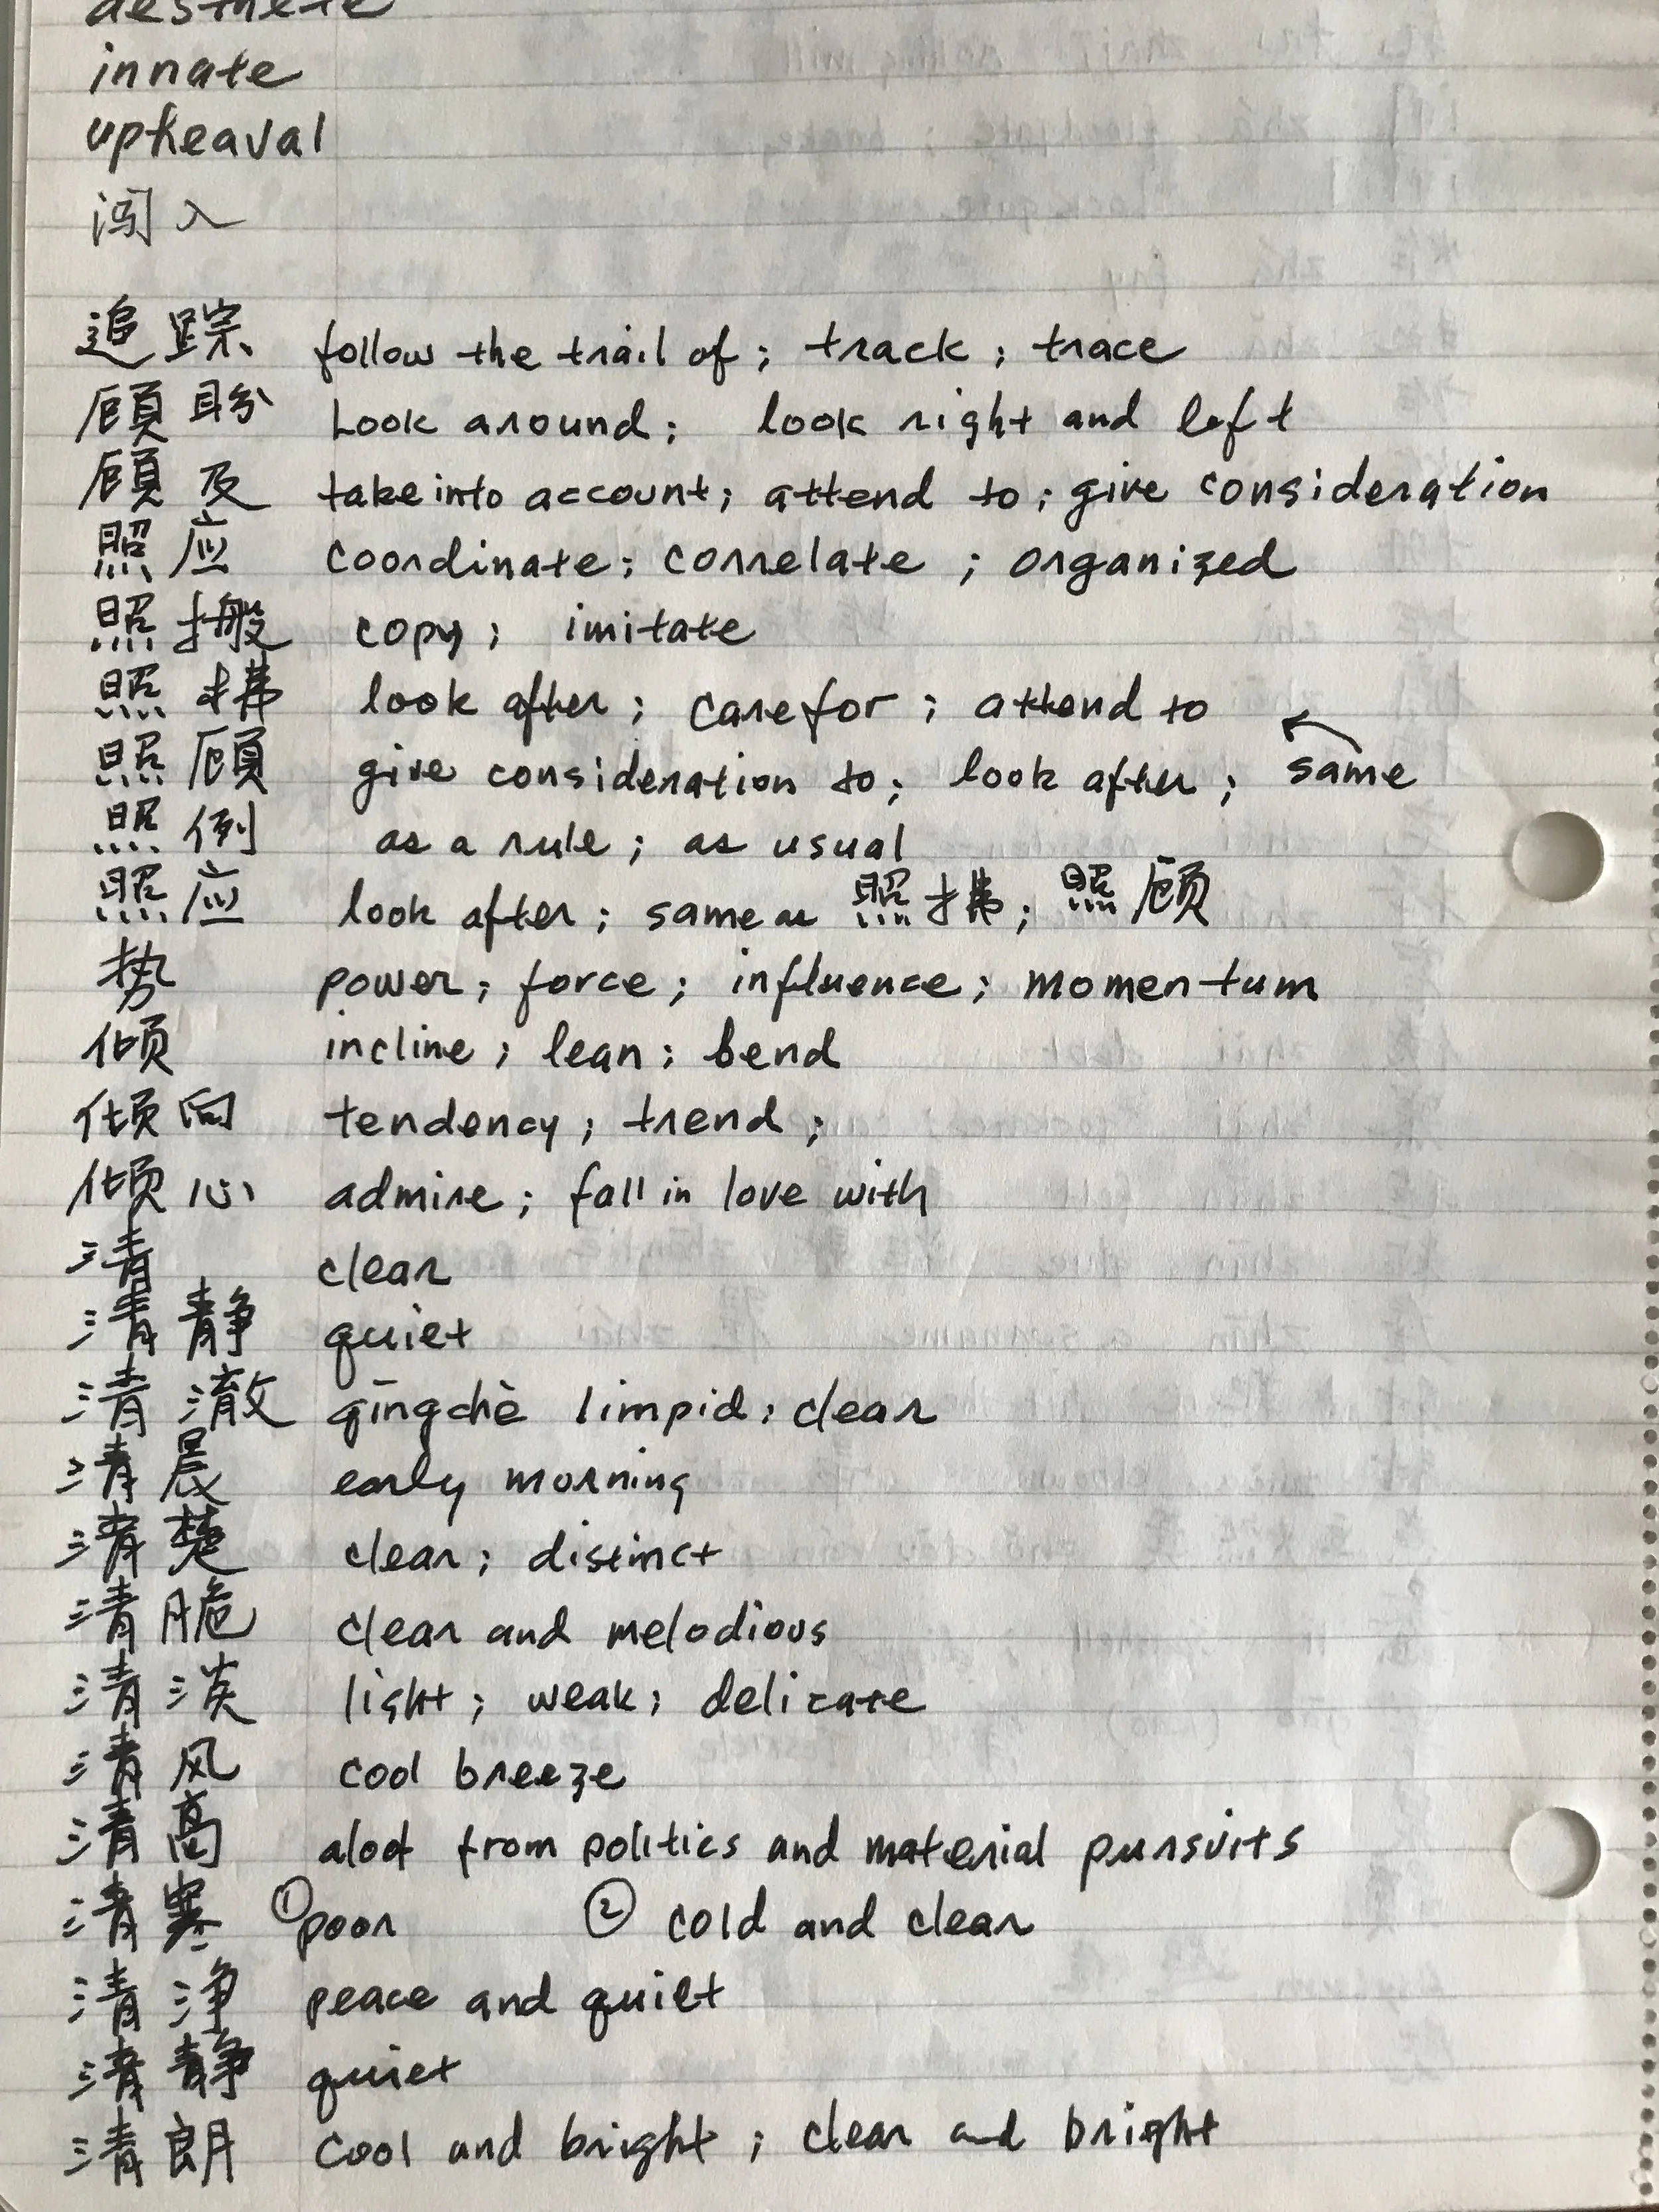 aesthete
innate
upheaval
闯入
追踪 follow the trail of; track; trace
顾盼 Look around; look right and left
顾及 take into account; attend to; give consideration
照应 coordinate; correlate; organized
照搬 copy; imitate
照拂 look after; care for; attend to
照顾 give consideration to; look after; same
照例 as a rule; as usual
照应 look after; same as 照拂; 照顾
势 power; force; influence; momentum
倾 incline; lean; bend
倾向 tendency; trend;
倾心 admire; fall in love with
清 clear
清静 quiet
清澈 qīngchè limpid; clear
清晨 early morning
清楚 clear; distinct
清脆 clear and melodious
清淡 light; weak; delicate
清风 cool breeze
清高 aloof from politics and material pursuits
清寒 ① poor ② cold and clear
清净 peace and quiet
清静 quiet
清朗 cool and bright; clear and bright